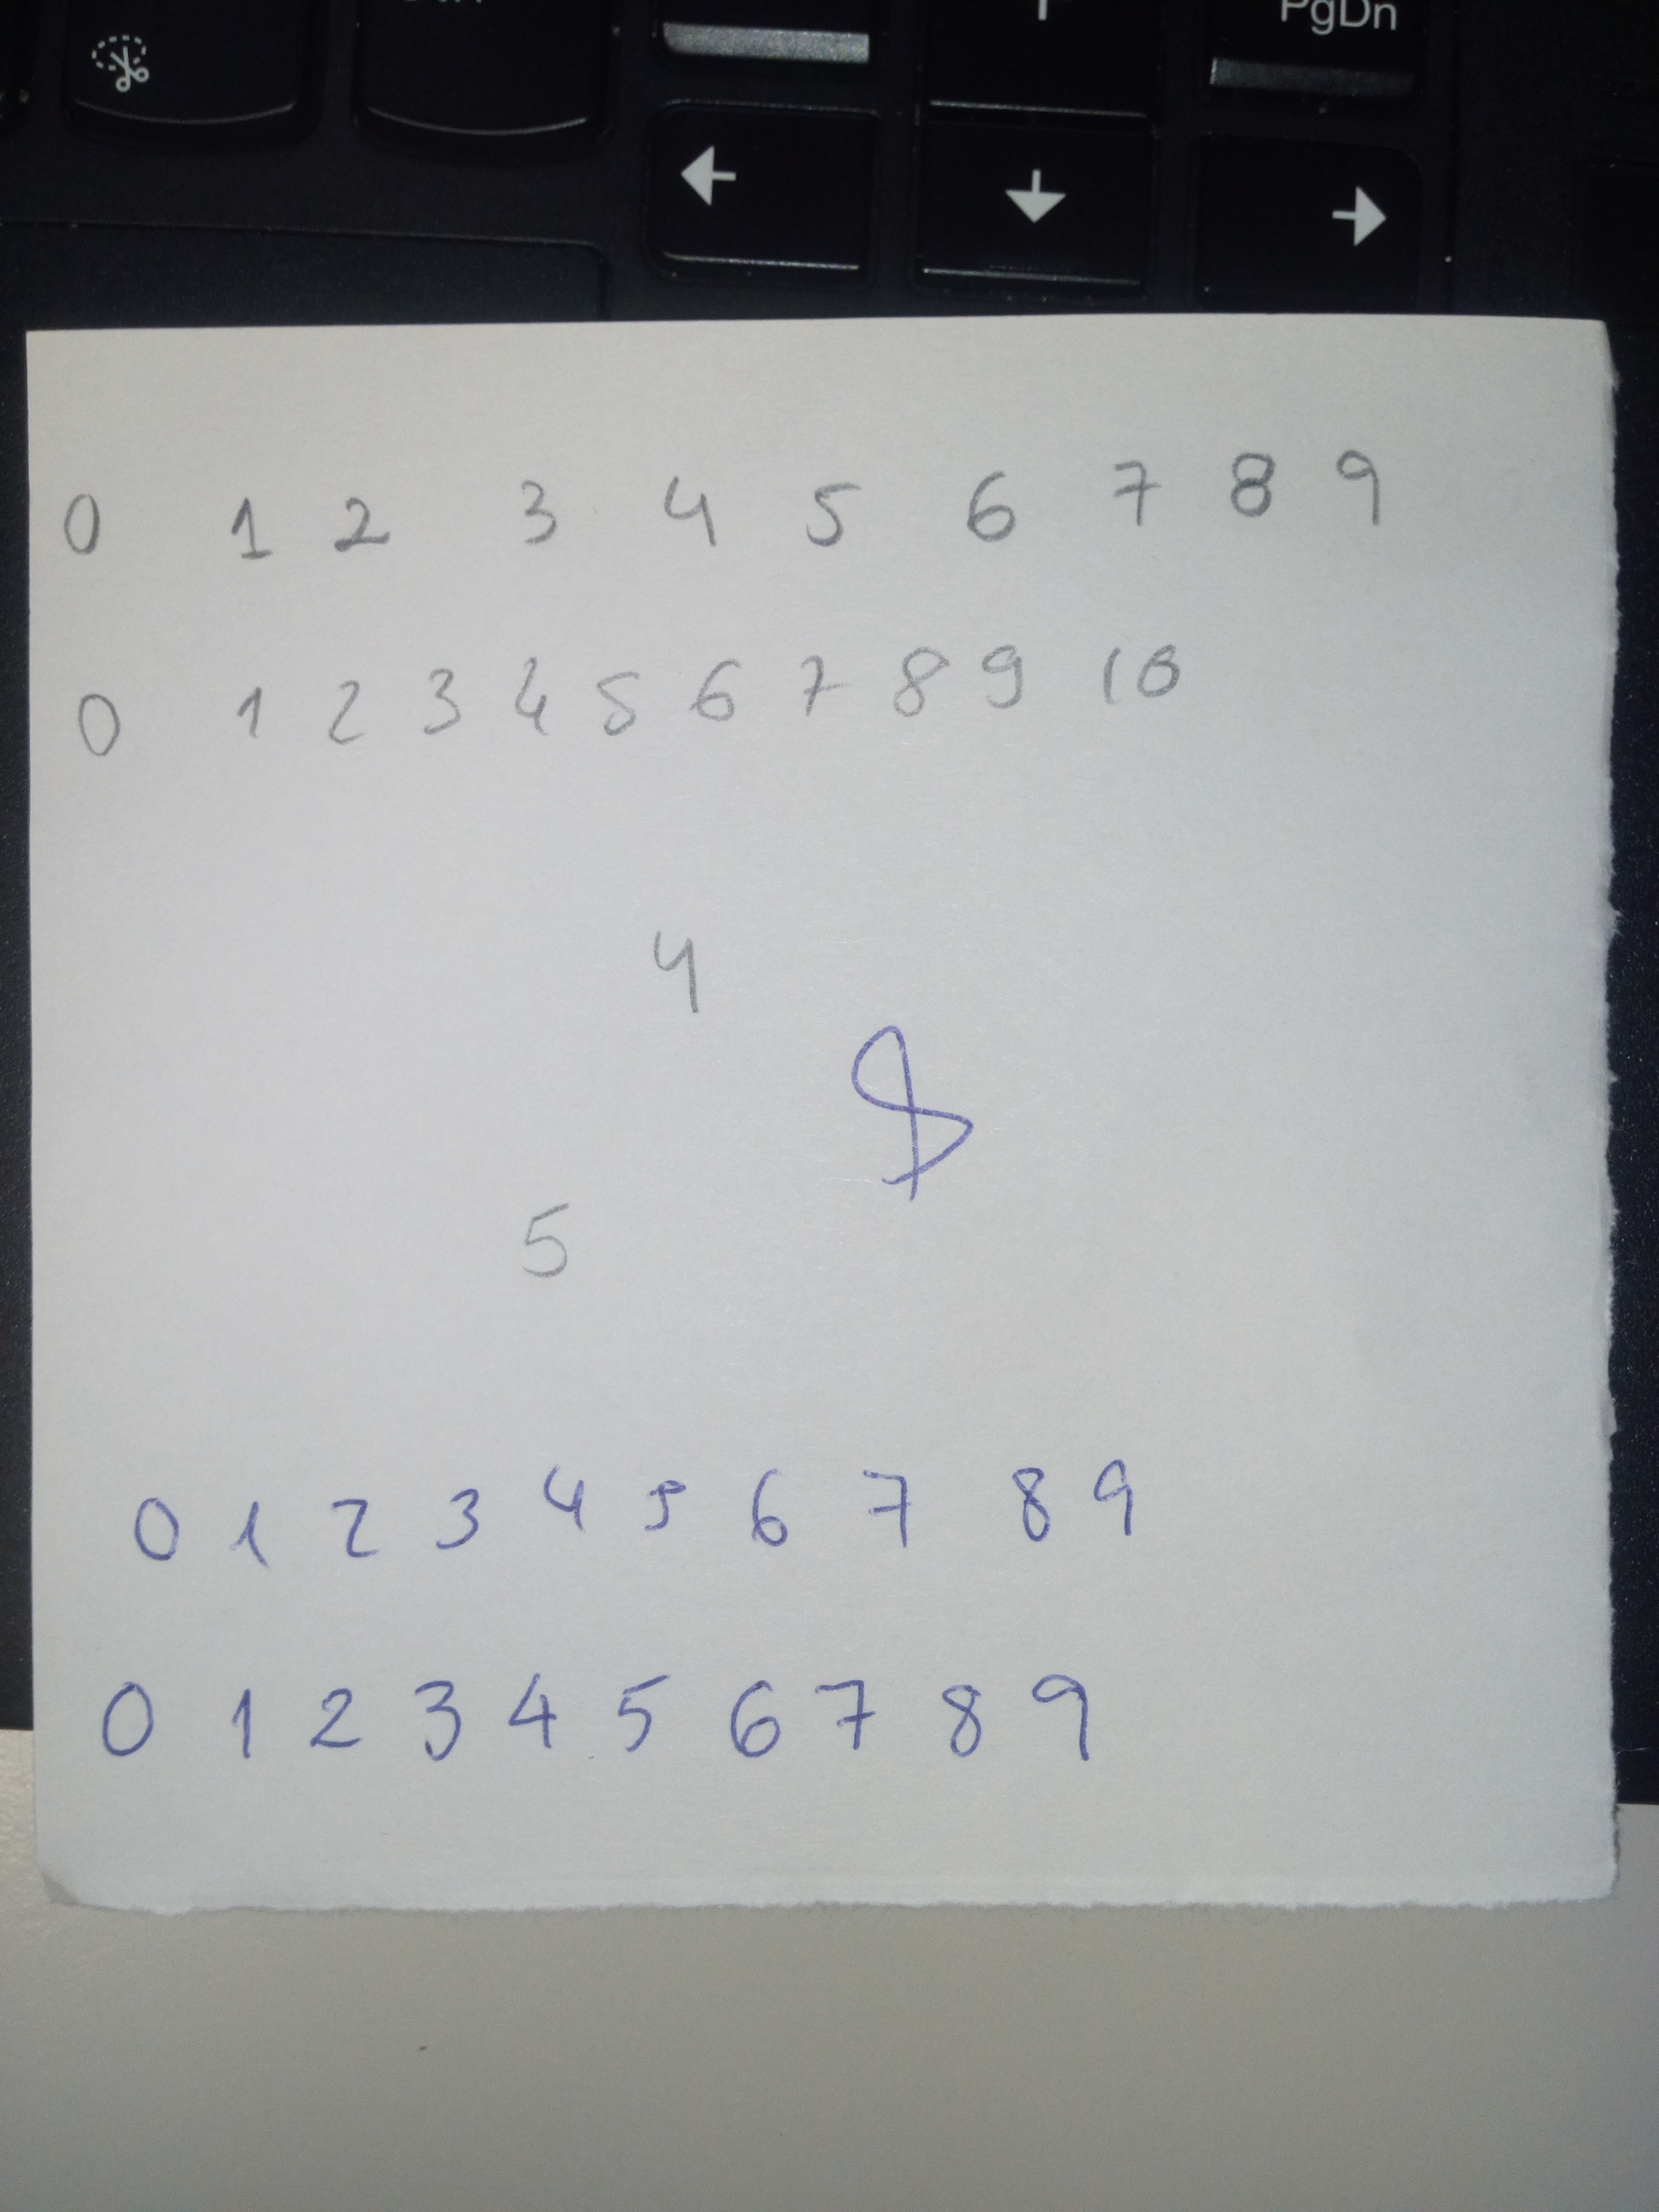 PgDn
0 1 2 3 4 5 6 7 8 9
0 1 2 3 4 5 6 7 8 9 10
4
5
0 1 2 3 4 5 6 7 8 9
0 1 2 3 4 5 6 7 8 9